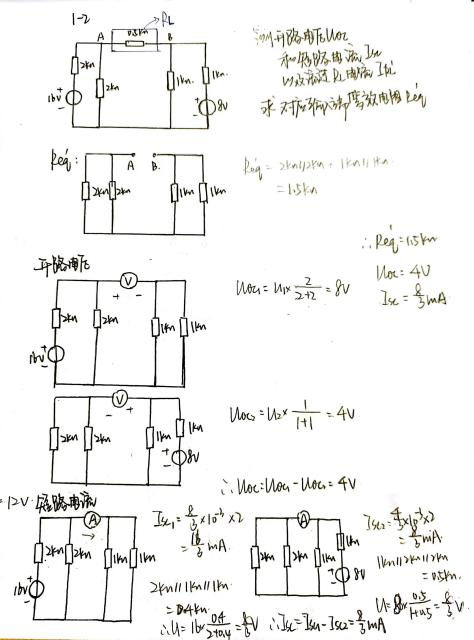 1-2
RL
A
0.5kΩ
B
2kΩ
2kΩ
1kΩ
1kΩ
16V
8V
+
-
+
-
测开路电压Uoc
和短路电流Isc
以及流过RL电流
求对应端口等效电阻Req
Req:
A
B
2kΩ
2kΩ
1kΩ
1kΩ
Req = 2kΩ//2kΩ + 1kΩ//1kΩ
=1.5kΩ
∴Req=1.5kΩ
Uoc=4V
Isc=8/3mA
开路电压
V
+
-
2kΩ
2kΩ
1kΩ
1kΩ
16V
+
-
Uoc1=U1×2/(2+2)=8V
V
-
+
2kΩ
2kΩ
1kΩ
1kΩ
8V
+
-
Uoc2=U2×1/(1+1)=4V
∴Uoc=Uoc1-Uoc2=4V
=12V.
短路电流
A
→
2kΩ
2kΩ
1kΩ
1kΩ
16V
+
-
Isc1=8/3×10⁻³×2
=16/3mA.
2kΩ//1kΩ//1kΩ
=0.4kΩ
∴U=16×0.4/(2+0.4)=8/3V
A
2kΩ
2kΩ
1kΩ
1kΩ
8V
+
-
Isc2=4/3×10⁻³×2
=8/3mA.
1kΩ//2kΩ//2kΩ
=0.5kΩ
U=8×0.5/(1+0.5)=8/3V
∴Isc=Isc1-Isc2=8/3mA